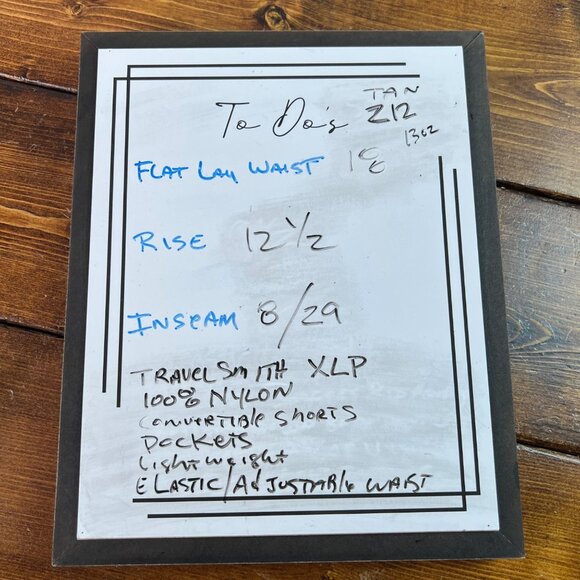 To Do's
TAN
Z12
13oz
FLAT LAY WAIST 18
RISE 12 1/2
INSEAM 8/29
TRAVELSMITH XLP
100% NYLON
CONVERTIBLE SHORTS
POCKETS
Lightweight
ELASTIC/ADJUSTABLE WAIST